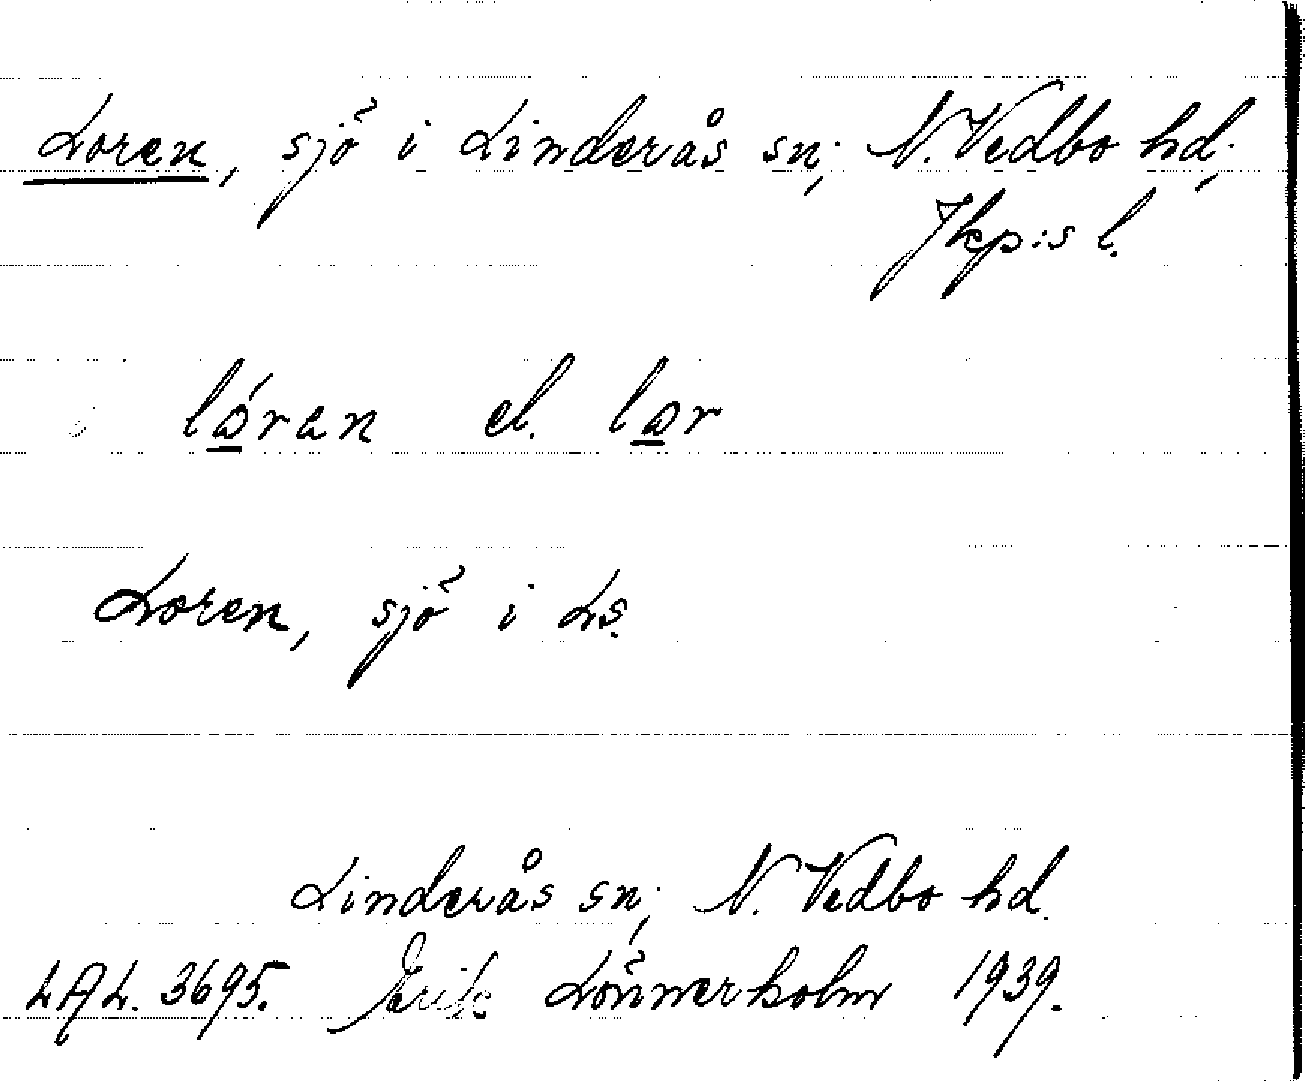 Loren, sjö i Linderås sn; N. Vedbo hd;
Jkp:s l.
lǿ̲ran el. lø̲r
Loren, sjö i Ls.
Linderås sn; N. Vedbo hd.
LAL. 3695. Erik Lönnerholm 1939.